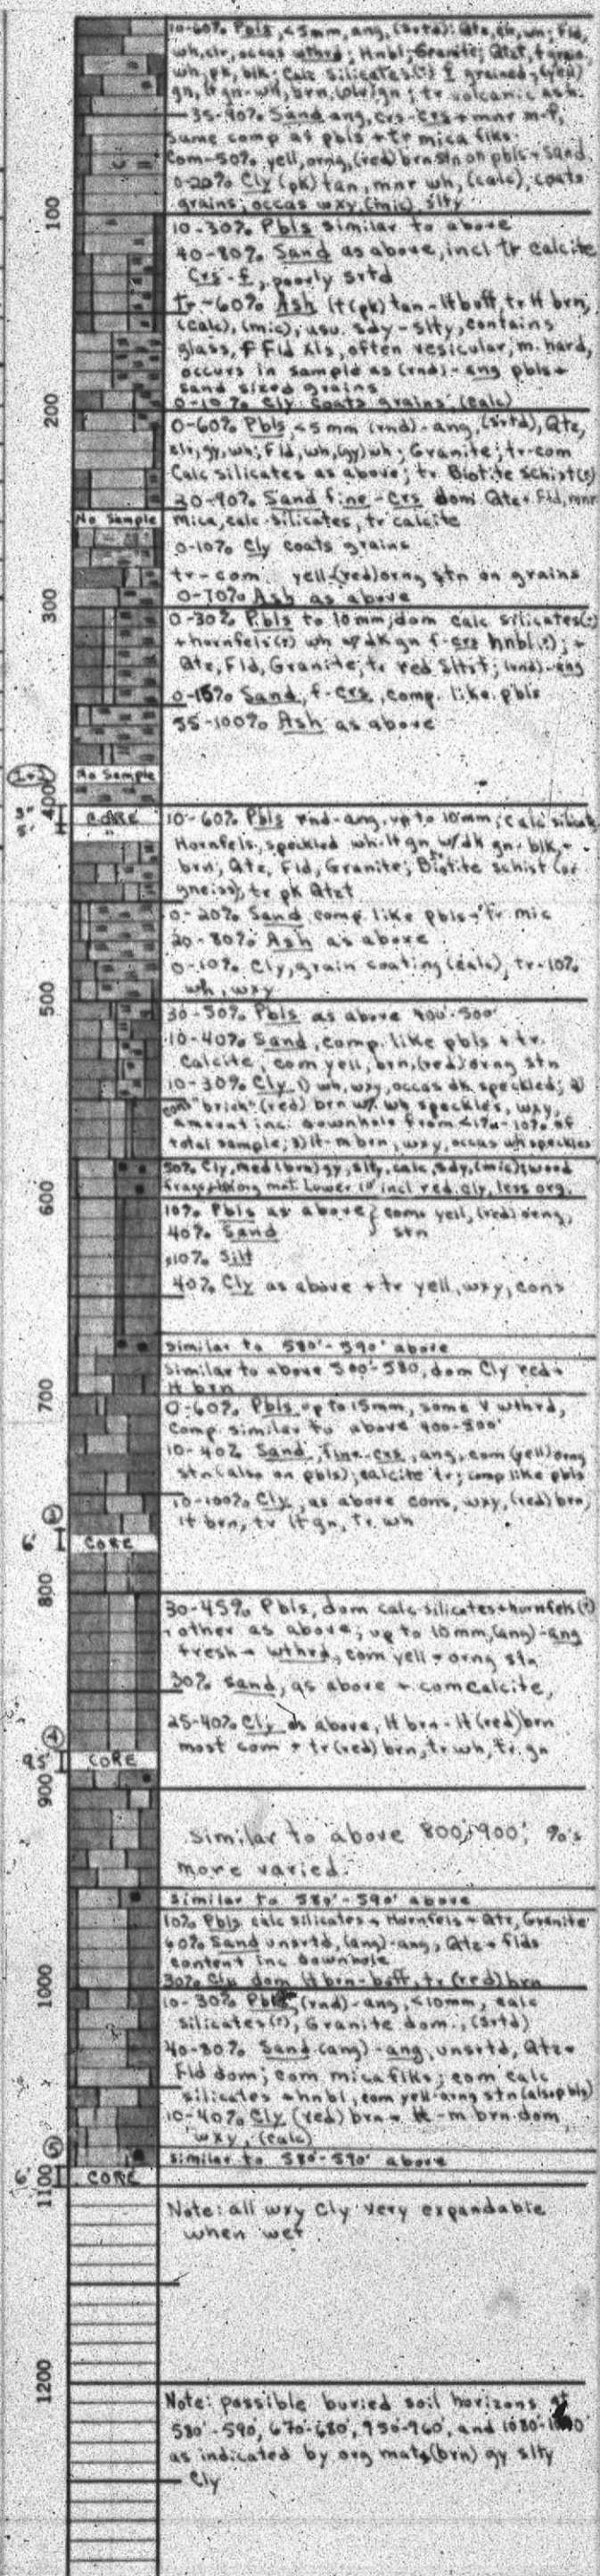 10-60% Pbls, <5mm, ang, (srtd): Qtz, clr, wh; Fld,
wh, clr, occas wthrd; Hnbl, Granite; Qtzt, f grain,
wh, pk, blk; Calc silicates(?) f grained, (yell)
gn, lt gn-wh, brn, (olv) gn; tr volcanic ash.
35-90% Sand ang, crs-crs + mnr m-f,
same comp as pbls + tr mica flks.
Com-50% yell, orng, (red) brn stn on pbls + Sand
0-20% Cly (pk) tan, mnr wh, (calc), coats
grains, occas wxy, (mic), slty
100
10-30% Pbls similar to above
40-80% Sand as above, incl tr calcite
Crs-f, poorly srtd
Tr-60% Ash lt(pk) tan-lt buff, tr lt brn,
(calc), (mic), usu. sdy-slty, contains
glass, F Fld Xls, often vesicular, m. hard,
occurs in sample as (rnd)-ang pbls +
sand sized grains
0-10% Cly coats grains (calc)
200
0-60% Pbls, <5mm (rnd)-ang, (srtd), Qtz,
clr, gy, wh; Fld, wh, (gy) wh; Granite; tr-com
Calc silicates as above; tr. Biotite schist(?)
20-90% Sand fine-crs dom Qtz + Fld, mnr
No Sample
mica, calc-silicates, tr calcite
0-10% Cly coats grains
tr-com yell-(red) orng stn on grains
0-70% Ash as above
300
0-30% Pbls to 10mm, dom calc silicates(?)
+ hornfels(?) wh w/dk gn f-crs hnbl(?); +
Qtz, Fld, Granite; tr red Sltst; (rnd)-ang
0-15% Sand, f-crs, comp. like pbls
55-100% Ash as above
No Sample
400
CORE
10-60% Pbls rnd-ang, up to 10mm; Calc silicate
Hornfels, speckled wh-lt gn, w/dk gn, blk, +
brn; Qtz, Fld, Granite; Biotite schist (or
gneiss), tr pk Qtzt
0-20% Sand comp like pbls + tr mic
20-80% Ash as above
0-10% Cly, grain coating (calc), tr-10%
wh, wxy
500
30-50% Pbls as above 400-500'
10-40% Sand, comp. like pbls + tr.
Calcite, com yell, brn, (red) orng stn
10-30% Cly 1) wh, wxy, occas dk speckled; 2)
cons "brick" (red) brn w/ wh speckles, wxy,
amount inc. downhole from <1%-10% of
total sample; 3) lt-m brn, wxy, occas wh speckles
50% Cly, med (brn) gy, slty, calc, sdy, (mic); wood
frags, + org mat. Lower 10' incl red. cly, less org.
600
10% Pbls as above } com yell, (red) orng,
40% Sand stn
10% Silt
40% Cly as above + tr yell, wxy, cons
similar to 580'-590' above
similar to above 500-580, dom Cly red +
lt brn
700
0-60% Pbls up to 15mm, some v wthrd,
comp similar to above 400-500'
10-40% Sand, fine-crs, ang, com (yell) orng
stn (also on pbls); calcite tr; comp like pbls
10-100% Cly, as above cons, wxy, (red) brn,
lt brn, tr lt gn, tr. wh
6'
CORE
800
30-45% Pbls, dom calc-silicates + hornfels(?)
+ other as above; up to 10mm, (ang)-ang
fresh-wthrd, com yell + orng stn
30% sand, as above + com calcite,
25-40% Cly as above, lt brn-lt (red) brn
most com + tr (red) brn, tr wh, tr. gn
9.5'
CORE
900
similar to above 800'-900', %'s
more varied.
similar to 580'-590' above
10% Pbls calc silicates + Hornfels + Qtz, Granite
60% Sand unsrtd, (ang)-ang, Qtz + flds
content inc downhole
30% Cly dom lt brn-buff, tr (red) brn
1000
10-30% Pbls, (rnd)-ang, <10mm, calc
silicates(?), Granite dom., (srtd)
40-80% Sand (ang)-ang, unsrtd, Qtz +
Fld dom; com mica flks; com calc
silicates + hnbl, com yell-orng stn (also pbls)
10-40% Cly (red) brn + lt-m brn dom
wxy, (calc)
similar to 580'-590' above
6'
CORE
1100
Note: all wxy Cly very expandable
when wet.
1200
Note: possible buried soil horizons at
580'-590, 670-680', 950-960', and
as indicated by org mat + (brn) gy slty
Cly